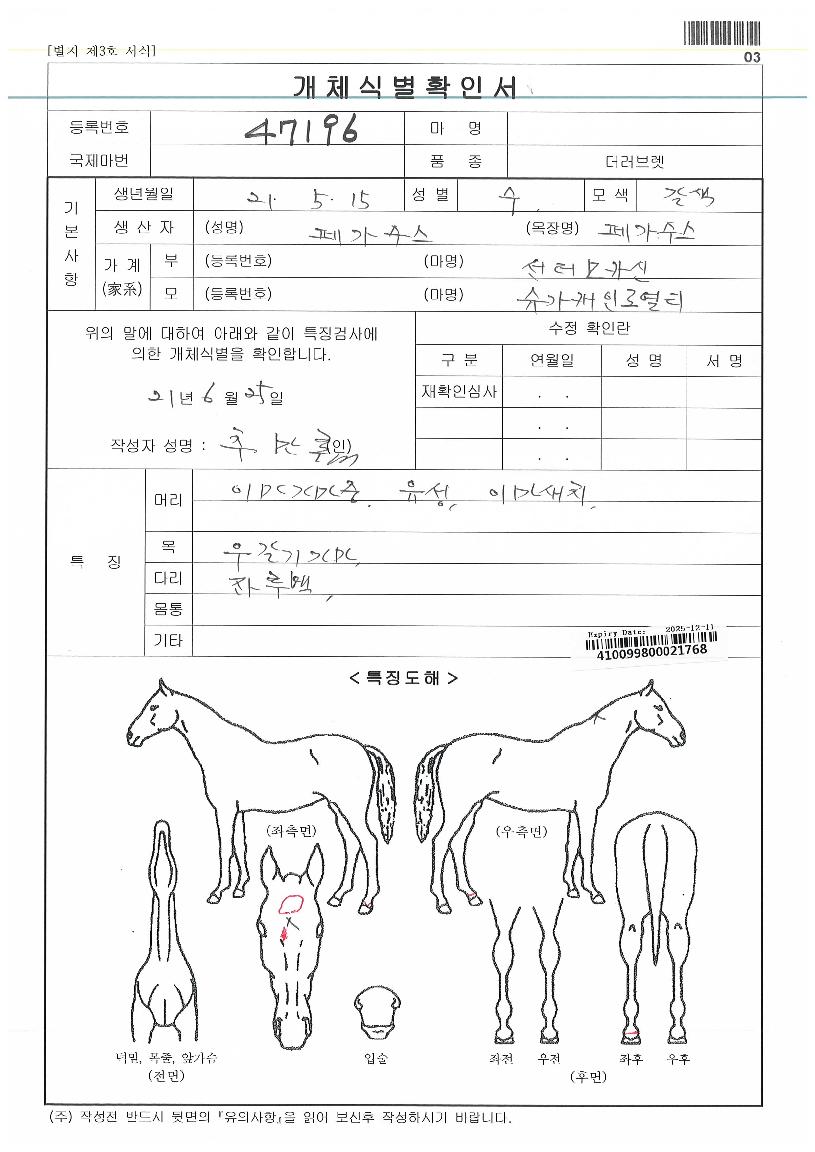 [별지 제3호 서식]
03
개체식별확인서
등록번호 47196 마 명
국제마번 품 종 더러브렛
기본사항
생년월일 21. 5. 15 성 별 수 모 색 갈색
생 산 자 (성명) 페가수스 (목장명) 페가수스
가 계 (家系) 부 (등록번호) (마명)
모 (등록번호) (마명)
위의 말에 대하여 아래와 같이 특징검사에
의한 개체식별을 확인합니다.
21년 6월 25일
작성자 성명 : (인)
수정 확인란
구 분 연월일 성 명 서 명
재확인심사 . .
. .
. .
특 징
머리 이마가마중, 유성, 이마새치,
목 우갈기가마,
다리
몸통
기타
Expiry Date: 2025-12-11
410099800021768
< 특징도해 >
(좌측면) (우측면)
턱밑, 목줄, 앞가슴 입술 좌전 우전 좌후 우후
(전면) (후면)
(주) 작성전 반드시 뒷면의 『유의사항』을 읽어 보신후 작성하시기 바랍니다.